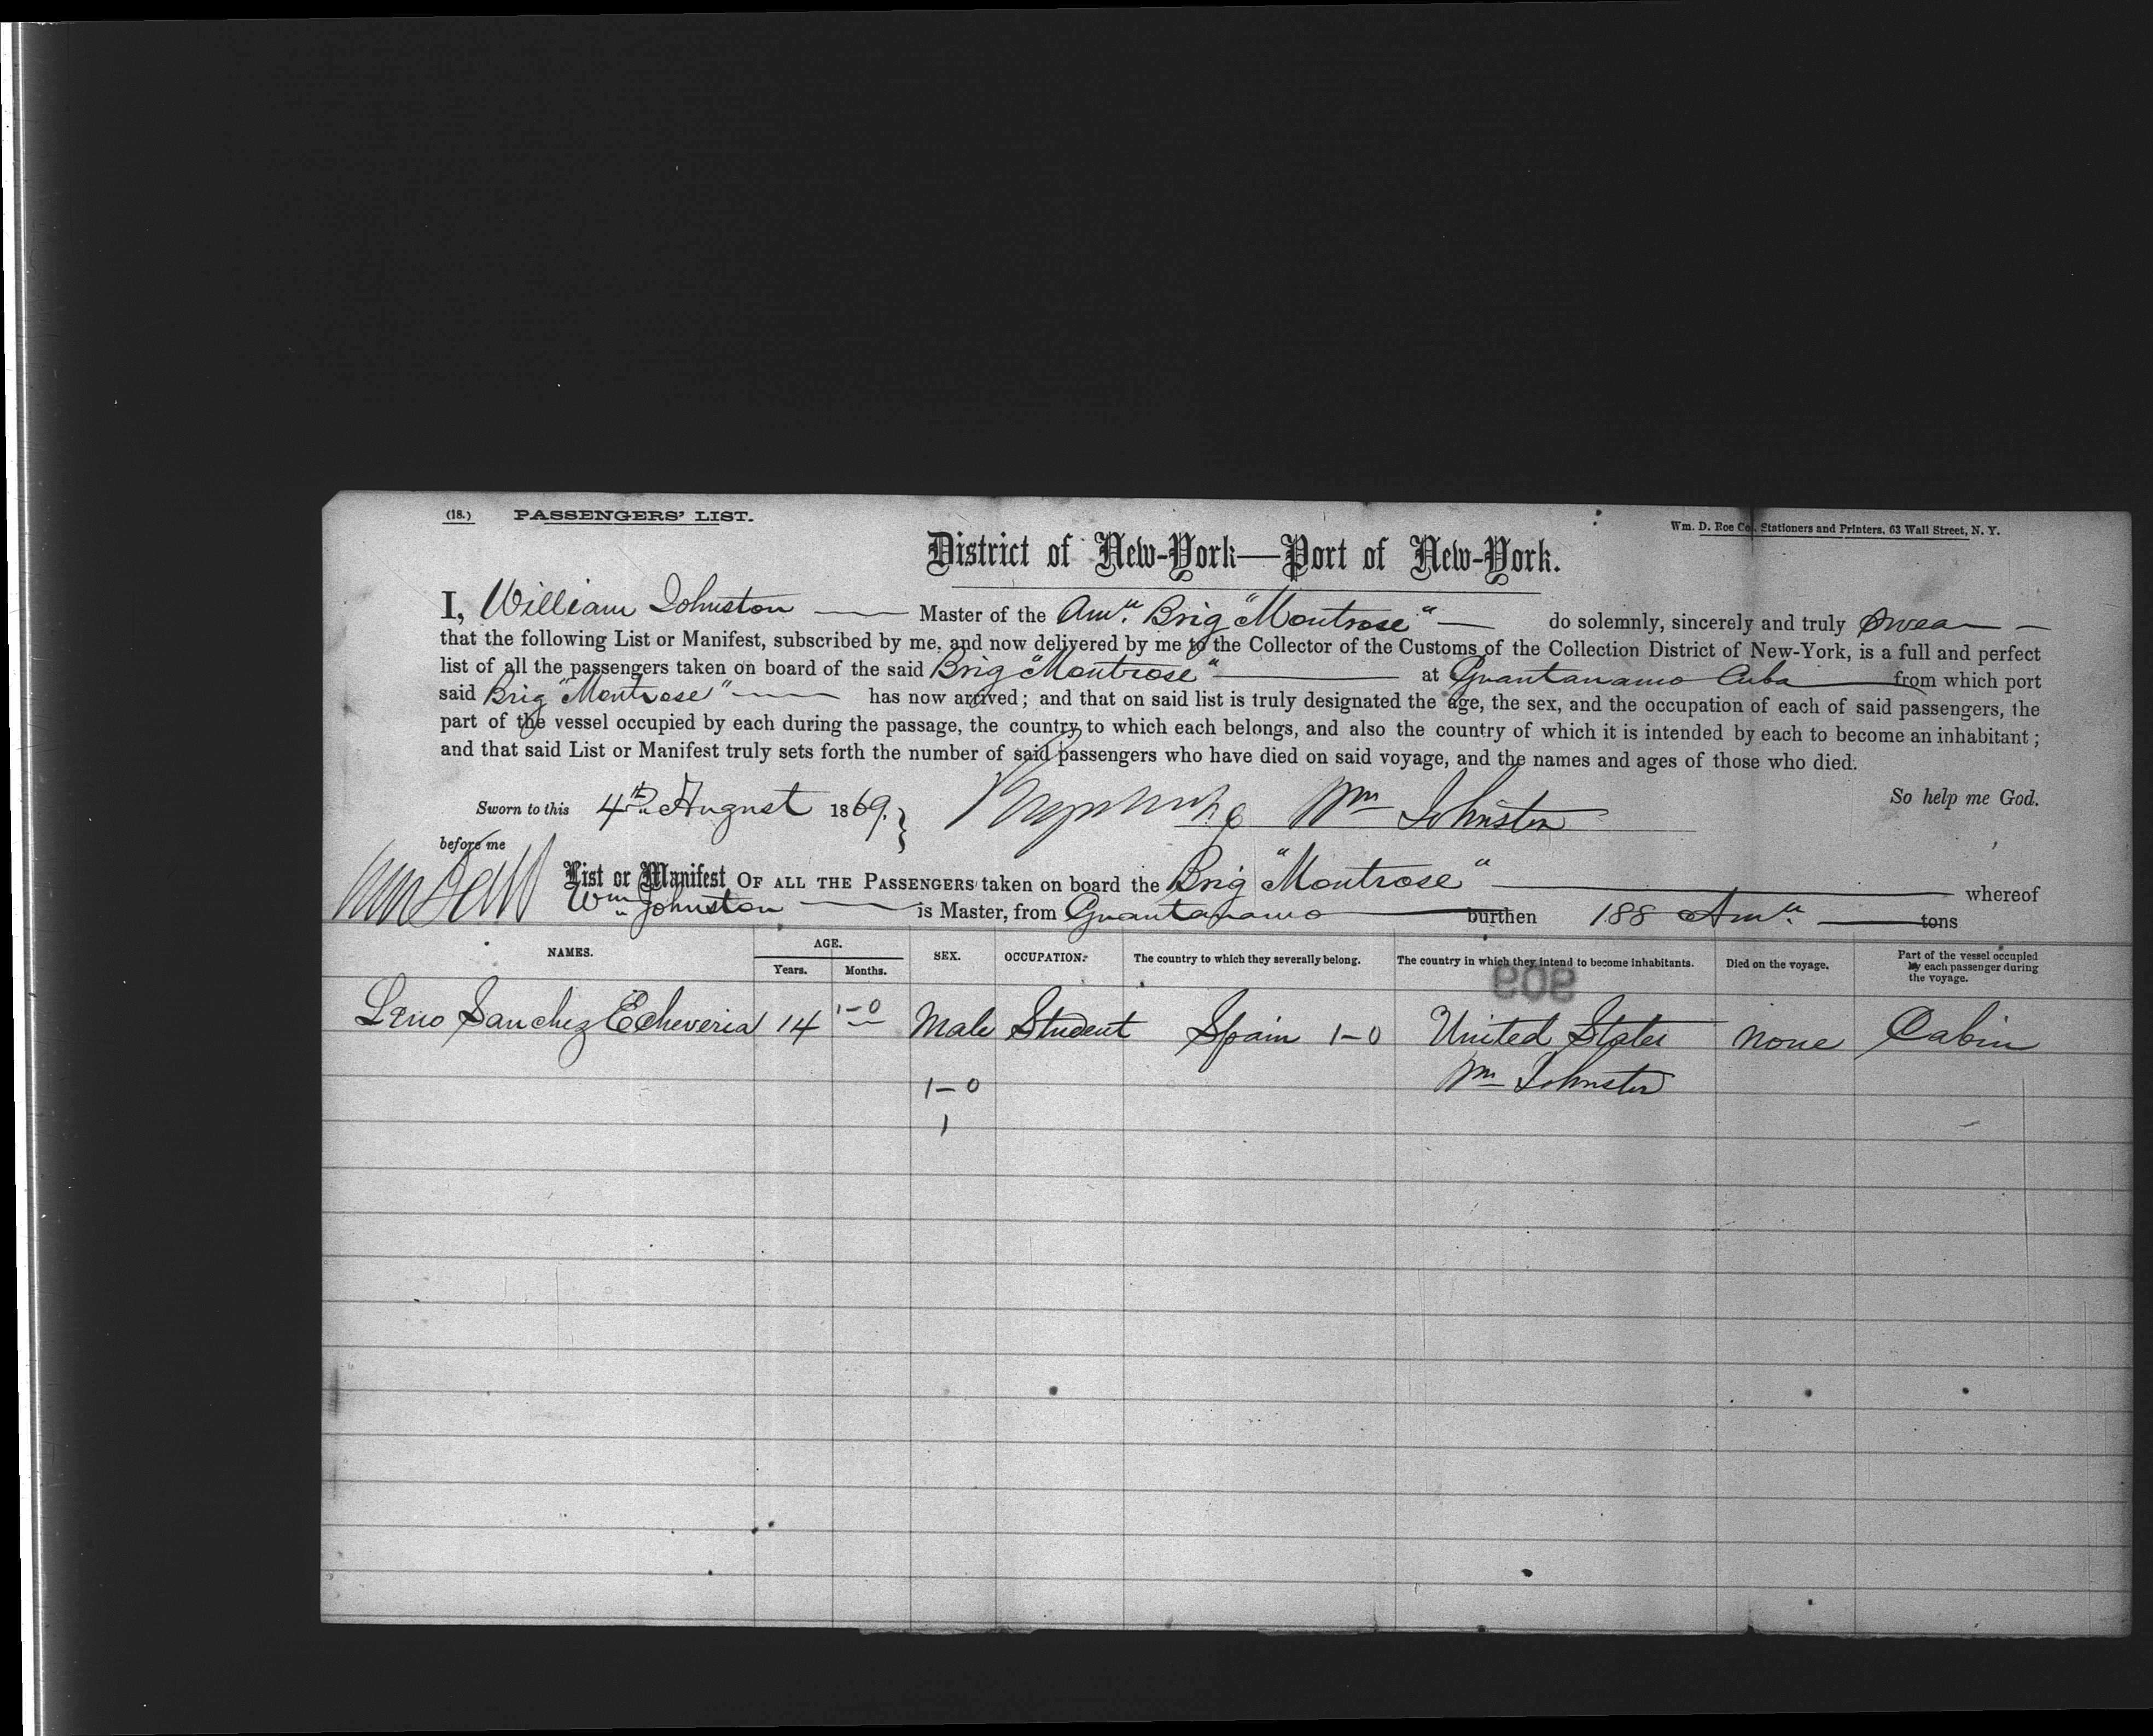 (18.) PASSENGERS' LIST.
Wm. D. Roe Co., Stationers and Printers, 63 Wall Street, N. Y.
District of New-York—Port of New-York.
I, William Johnston Master of the Amn. Brig "Montrose" do solemnly, sincerely and truly swear
that the following List or Manifest, subscribed by me, and now delivered by me to the Collector of the Customs of the Collection District of New-York, is a full and perfect
list of all the passengers taken on board of the said Brig "Montrose" at Guantanamo Cuba from which port
said Brig "Montrose" has now arrived; and that on said list is truly designated the age, the sex, and the occupation of each of said passengers, the
part of the vessel occupied by each during the passage, the country to which each belongs, and also the country of which it is intended by each to become an inhabitant;
and that said List or Manifest truly sets forth the number of said passengers who have died on said voyage, and the names and ages of those who died.
So help me God.
Sworn to this 4th August 1869. Wm Johnston
before me
List or Manifest OF ALL THE PASSENGERS taken on board the Brig "Montrose" whereof
Wm Johnston is Master, from Guantanamo burthen 188 Amn. tons
NAMES. AGE. Years. Months. SEX. OCCUPATION. The country to which they severally belong. The country in which they intend to become inhabitants. Died on the voyage. Part of the vessel occupied by each passenger during the voyage.
808
Lino Sanchez Echeveria 14 1-0 Male Student Spain 1-0 United States none Cabin
1-0 Wm Johnston
1